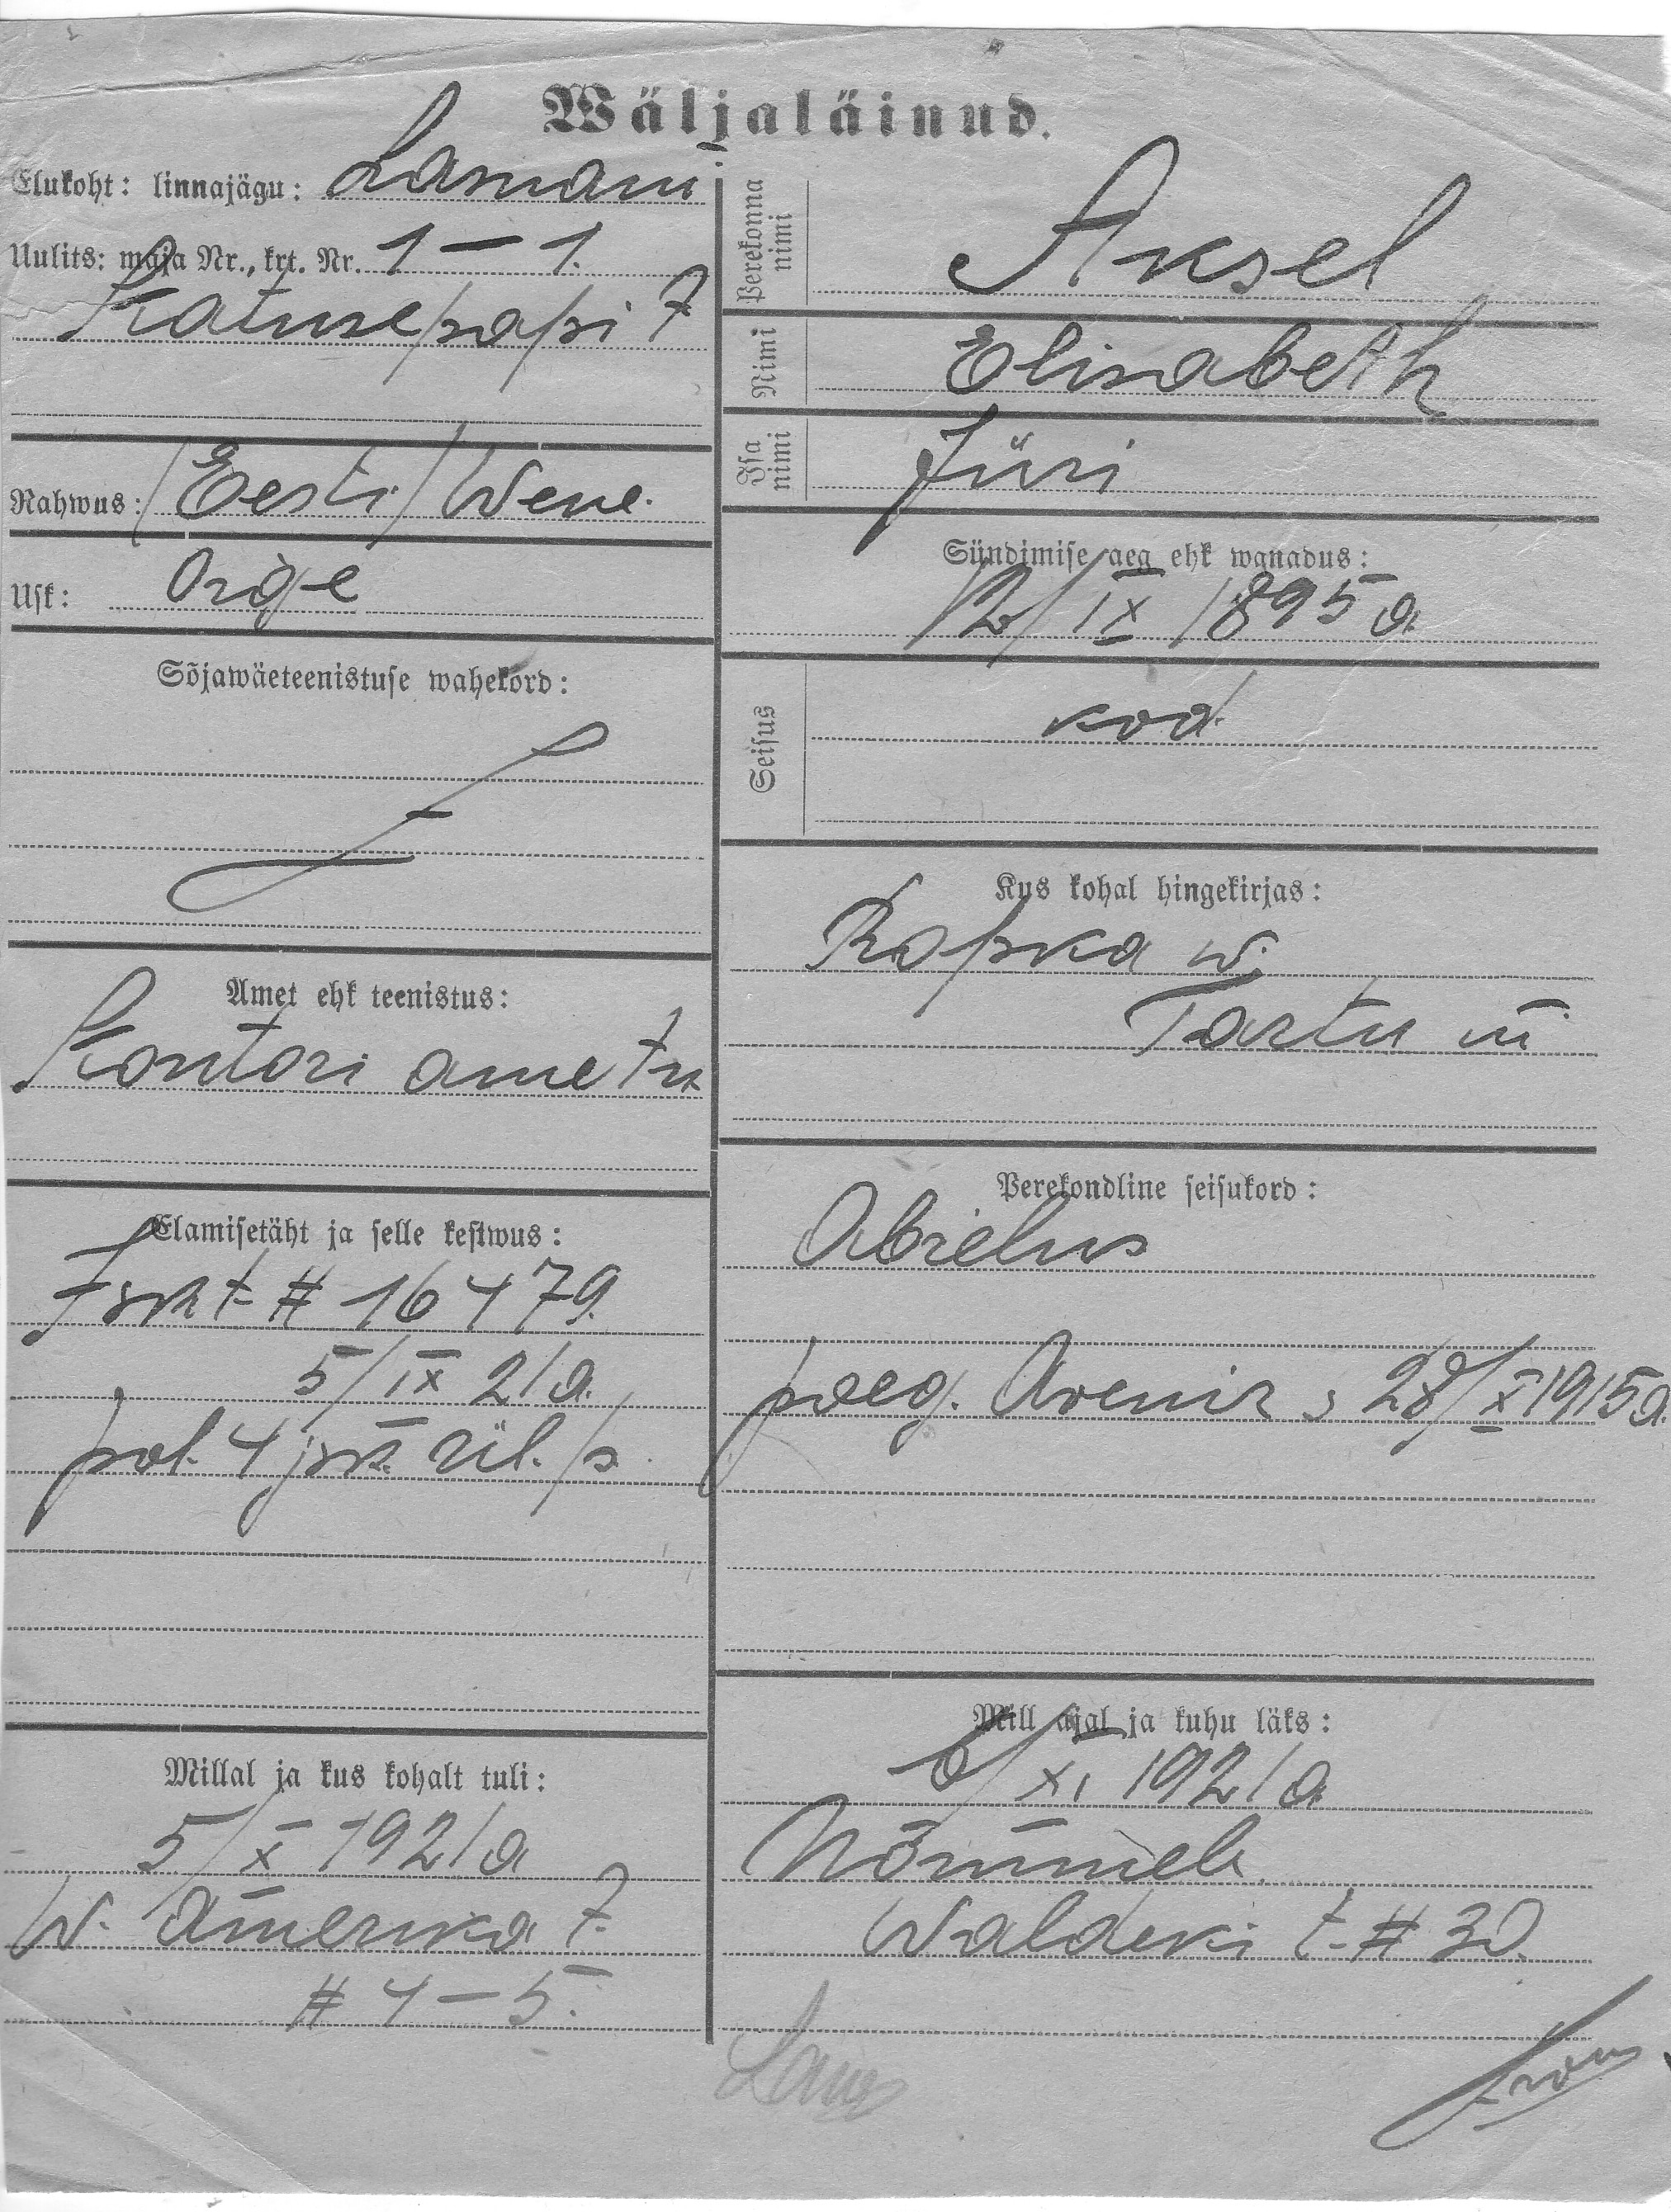 Wäljaläinud.
Elukoht: linnajägu: Lasnam.
Uulits: maja Nr., krt. Nr. 1 — 1.
Katusepapi t
Rahwus: /Eesti/ Wene.
Usk: Õige
Sõjawäeteenistuse wahekord:
Amet ehk teenistus:
Kontori ametn
Elamisetäht ja selle kestwus:
# 16479.
5/IX 21 a.
pol. 4 jsk. ül. p.
Millal ja kus kohalt tuli:
5/X 1921 a
W. Ameerika t.
# 4 — 5.
Perekonna nimi Aksel
Nimi Elisabeth
Isa nimi Jüri
Sündimise aeg ehk wanadus:
12/IX 1895 a.
Seisus kod.
Kus kohal hingekirjas:
Ropka w.
Tartu m
Perekondline seisukord:
Abielus
poeg. Avenir s 28/X 1915 a.
Mill ajal ja kuhu läks:
XI 1921 a.
Nõmmele
Waldeki t. # 30.